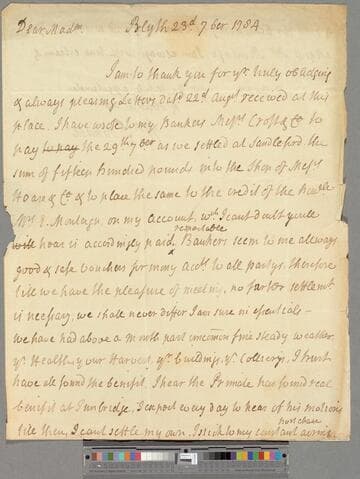 Dear Madm. Blyth 23d 7ber 1784
I am to thank you for yr. truly obliging
& always pleasing Letters datd. 22d Augst received at this
place. I have wrote to my Bankers Messrs Croft & Co to
pay to pay the 29th 7ber as we settled at Sandleford the
sum of fifteen hundred pounds into the Shop of Messrs
Hoare & Co. & to place the same to the credit of the honble
Mrs E. Montagu, on my account, wch. I cant doubt youll
will hear is accordingly paid, Bankers seem to me allways
remarkable
good & safe vouchers for mony accts. to all partys. therefore
till we have the pleasure of meeting, no farther settlemt.
is necessary, we shall never differ I am sure in essentials –
we have had above a month past uncommon fine steady weather.
yr. Health, your Harvest, yr. buildings, yr. Colliery, I trust
have all found the benefit, I hear the Primate has found real
benefit at Tunbridge, I expect every day to hear of his motions
till then, I cant settle my own. I stick to my constant airing
horseback